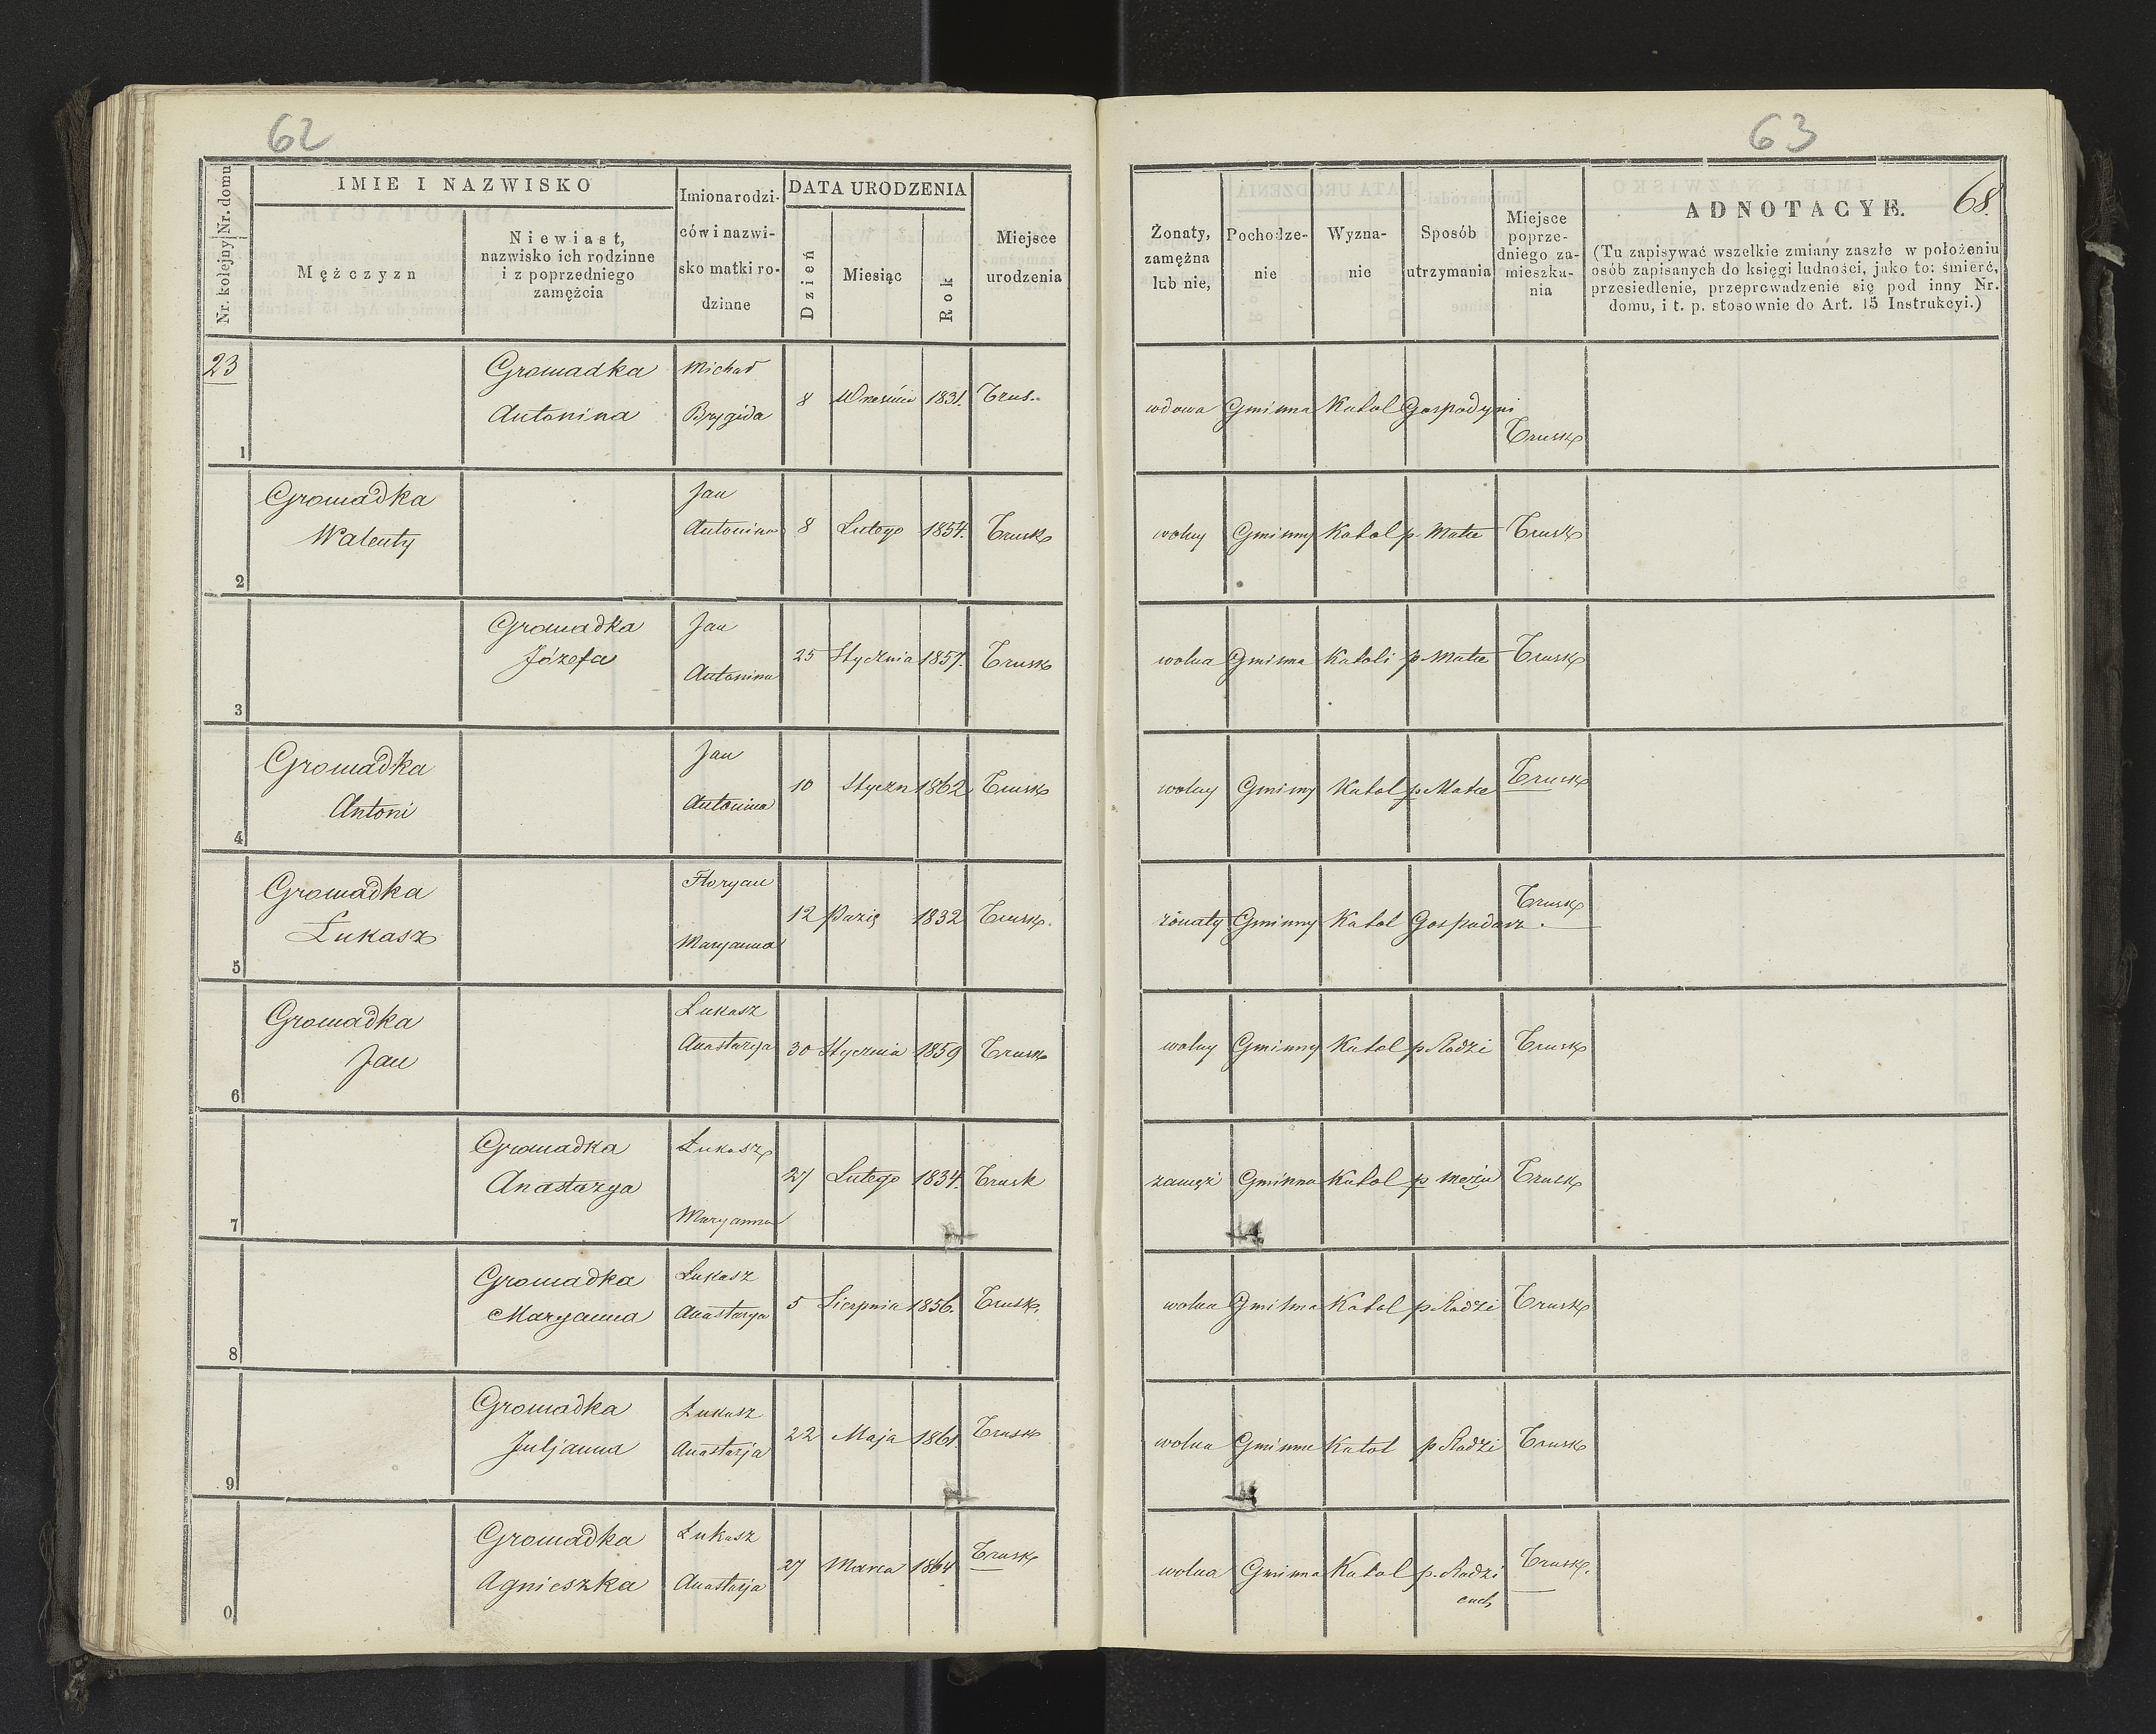 62
Nr. kolejny Nr. domu
IMIE I NAZWISKO
Mężczyzn
Niewiast,
nazwisko ich rodzinne
i z poprzedniego
zamęźcia
Imiona rodzi-
ców i nazwi-
sko matki ro-
dzinne
DATA URODZENIA
Dzień
Miesiąc
Rok
Miejsce
urodzenia
23
1
Gromadka
Antonina
Michał
Brygida
8 Wrześnie 1831. Trus..
2
Gromadka
Walenty
Jan
Antonina
8 Lutego 1854. Trusk
3
Gromadka
Józefa
Jan
Antonina
25 Stycznia 1857. Trusk
4
Gromadka
Antoni
Jan
Antonina
10 Styczn 1862 Trusk
5
Gromadka
Łukasz
Floryan
Maryanna
12 Pazię 1832 Trusk.
6
Gromadka
Jan
Łukasz
Anastazya
30 Stycznia 1859 Trusk
7
Gromadka
Anastazya
Łukasz
Maryanna
27 Lutego 1834. Trusk
8
Gromadka
Maryanna
Łukasz
Anastazya
5 Sierpnia 1856. Trusk.
9
Gromadka
Juljanna
Łukasz
Anastazja
22 Maja 1861. Trusk
0
Gromadka
Agnieszka
Łukasz
Anastazja
27 Marca 1864 Trusk
63
68.
Żonaty,
zamęźna
lub nie,
Pochodze-
nie
Wyzna-
nie
Sposób
utrzymania
Miejsce
poprze-
dniego za-
mieszka-
nia
ADNOTACYE.
(Tu zapisywać wszelkie zmiany zaszłe w położeniu
osób zapisanych do księgi ludności, jako to: śmierć,
przesiedlenie, przeprowadzenie się pod inny Nr.
domu, i t. p. stosownie do Art. 15 Instrukcyi.)
wdowa Gminna Katol Gospodyni Trusk
wolny Gminny Katol p. Matce Trusk
wolna Gminna Katoli p Matce Trusk
wolny Gminny Katol p. Matce Trusk
żonaty Gminny Katol Gospodarz. Trusk
wolny Gminny Katol p Rodzi Trusk
zamęż Gminna Katol p mężu Trusk
wolna Gminna Katol p Rodzi Trusk
wolna Gminna Katol p Rodzi Trusk
wolna Gminna Katol p. Rodzi Trusk.
cach